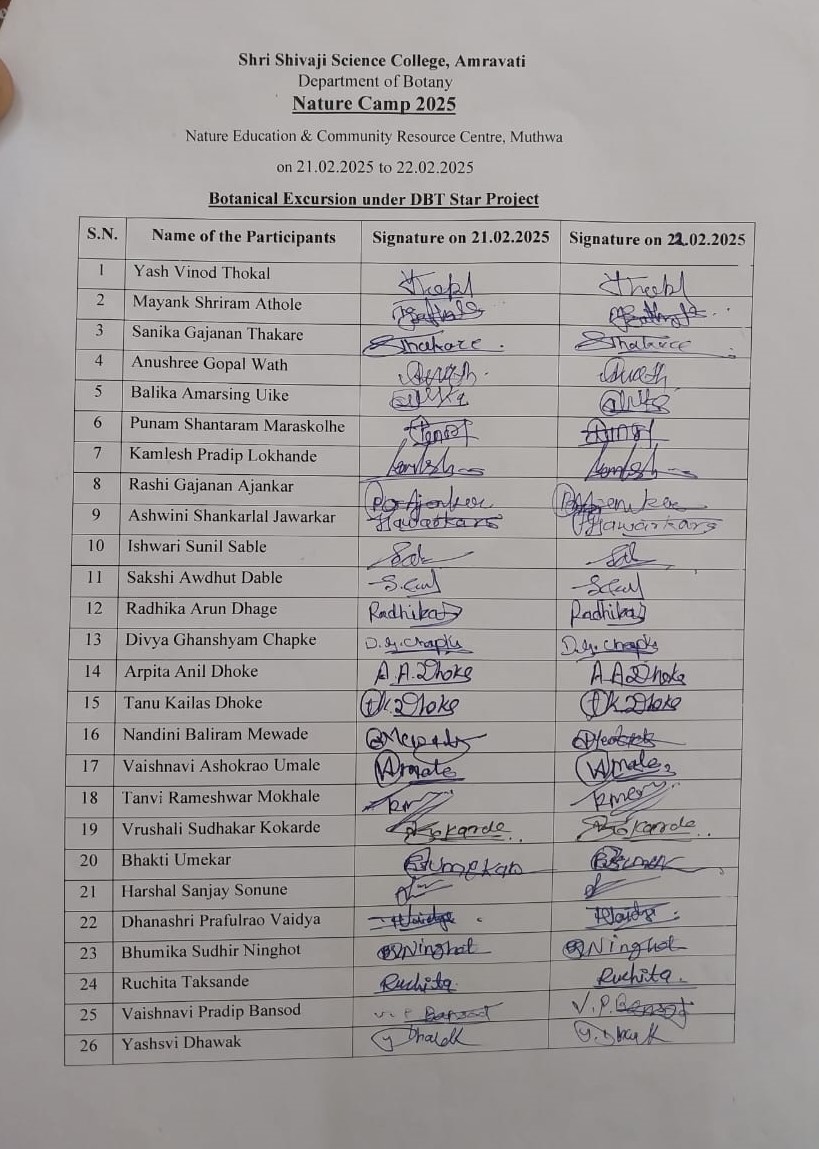 Shri Shivaji Science College, Amravati
Department of Botany
Nature Camp 2025
Nature Education & Community Resource Centre, Muthwa
on 21.02.2025 to 22.02.2025
Botanical Excursion under DBT Star Project
S.N. Name of the Participants Signature on 21.02.2025 Signature on 22.02.2025
1 Yash Vinod Thokal
2 Mayank Shriram Athole
3 Sanika Gajanan Thakare SThakare SThakare
4 Anushree Gopal Wath
5 Balika Amarsing Uike
6 Punam Shantaram Maraskolhe
7 Kamlesh Pradip Lokhande
8 Rashi Gajanan Ajankar
9 Ashwini Shankarlal Jawarkar
10 Ishwari Sunil Sable
11 Sakshi Awdhut Dable
12 Radhika Arun Dhage Radhika Radhika
13 Divya Ghanshyam Chapke D.G. Chapke D.G. Chapke
14 Arpita Anil Dhoke A.A.Dhoke A.A.Dhoke
15 Tanu Kailas Dhoke T.K.Dhoke T.K.Dhoke
16 Nandini Baliram Mewade
17 Vaishnavi Ashokrao Umale
18 Tanvi Rameshwar Mokhale
19 Vrushali Sudhakar Kokarde Kokarde Kokarde
20 Bhakti Umekar
21 Harshal Sanjay Sonune
22 Dhanashri Prafulrao Vaidya
23 Bhumika Sudhir Ninghot BNinghot BNinghot
24 Ruchita Taksande Ruchita Ruchita
25 Vaishnavi Pradip Bansod V.P Bansod V.P.Bansod
26 Yashsvi Dhawak